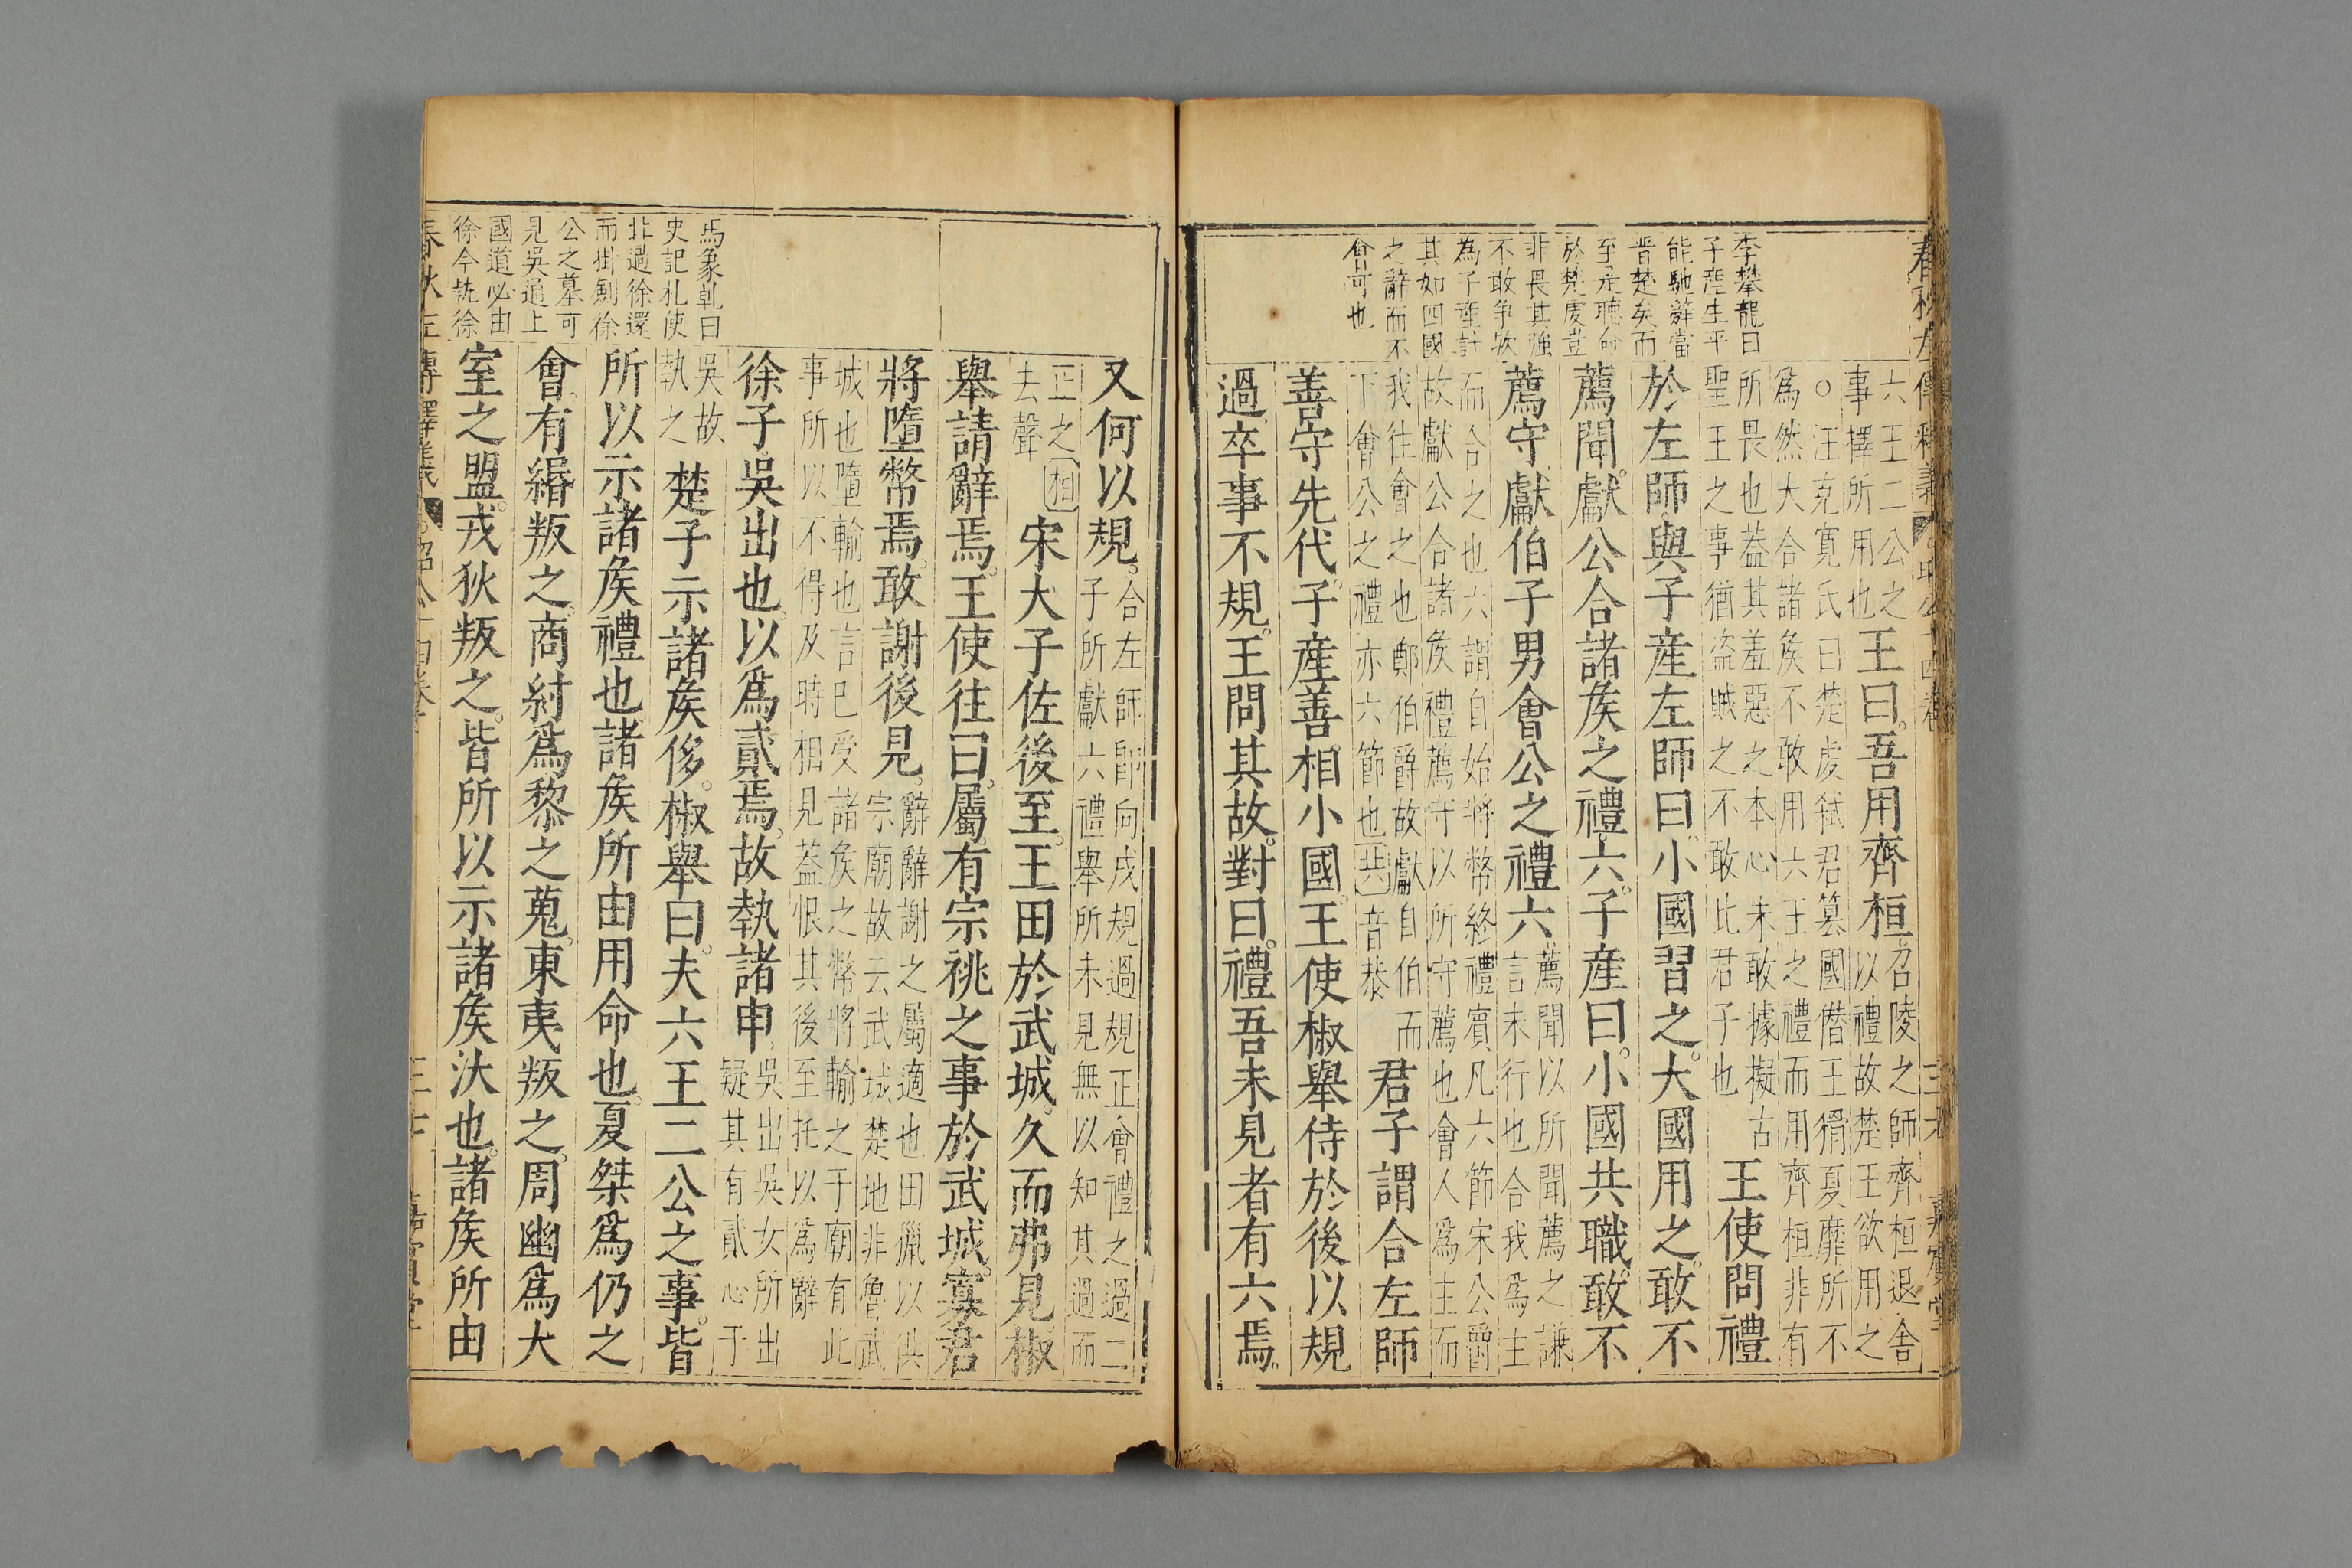 李攀龍曰
子產生平
能馳辭當
晋楚矣而
至是聽命
於楚虔豈
非畏其強
不敢争歟
為子產計
其如四國
之辭而不
會可也
六王二公之
事擇所用也
王曰吾用齊桓
召陵之師齊桓退舍
以禮故楚王欲用之
○汪克寬氏曰楚虔弑君簒國僭王猾夏靡所不
爲然大合諸矦不敢用六王之禮而用齊桓非有
所畏也葢其羞惡之本心未敢據擬古
聖王之事猶盗賊之不敢比君子也
王使問禮
於左師與子產左師曰小國習之大國用之敢不
薦聞獻公合諸矦之禮六子產曰小國共職敢不
薦守獻伯子男會公之禮六
薦聞以所聞薦之謙
言未行也合我爲主
而合之也六謂自始將幣終禮賓凡六節宋公爵
故獻公合諸矦禮薦守以所守薦也會人爲主而
我往會之也鄭伯爵故獻自伯而
下會公之禮亦六節也共音恭
君子謂合左師
善守先代子產善相小國王使椒舉侍於後以規
過卒事不規王問其故對曰禮吾未見者有六焉
馬象乹曰
史記札使
北過徐還
而掛劍徐
公之墓可
見吳通上
國道必由
徐今執徐
又何以規
合左師卽向戌規過規正會禮之過二
子所獻六禮舉所未見無以知其過而
正之相
去聲
宋大子佐後至王田於武城久而弗見椒
舉請辭焉王使往曰屬有宗祧之事於武城寡君
將墮幣焉敢謝後見
辭辭謝之屬適也田獵以供
宗廟故云武城楚地非魯武
城也墮輸也言已受諸矦之幣將輸之于廟有此
事所以不得及時相見葢恨其後至托以爲辭
徐子吳出也以爲貳焉故執諸申
吳出吳女所出
疑其有貳心于
吳故
執之
楚子示諸矦侈椒舉曰夫六王二公之事皆
所以示諸矦禮也諸矦所由用命也夏桀爲仍之
會有緡叛之商紂爲黎之蒐東夷叛之周幽爲大
室之盟戎狄叛之皆所以示諸矦汰也諸矦所由